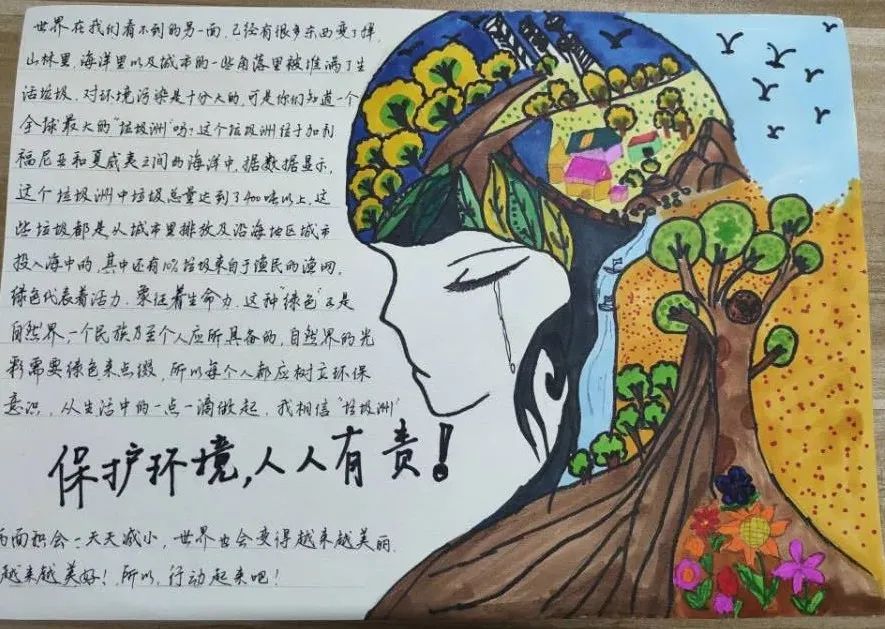 世界在我们看不到的另一面,已经有很多东西变了样,
山林里,海洋里以及城市的一些角落里被堆满了生
活垃圾,对环境污染是十分大的,可是你们知道一个
全球最大的“垃圾洲”吗?这个垃圾洲位于加利
福尼亚和夏威夷之间的海洋中,据数据显示,
这个垃圾洲中垃圾总量达到了400吨以上,这
些垃圾都是从城市里排放及沿海地区城市
投入海中的,其中还有10%垃圾来自于渔民的渔网。
绿色代表着活力,象征着生命力,这种“绿色”正是
自然界,一个民族乃至个人应所具备的,自然界的光
彩需要绿色来点缀,所以每个人都应树立环保
意识,从生活中的一点一滴做起,我相信“垃圾洲”
保护环境,人人有责!
面积会一天天减小,世界也会变得越来越美丽,
越来越美好!所以,行动起来吧!